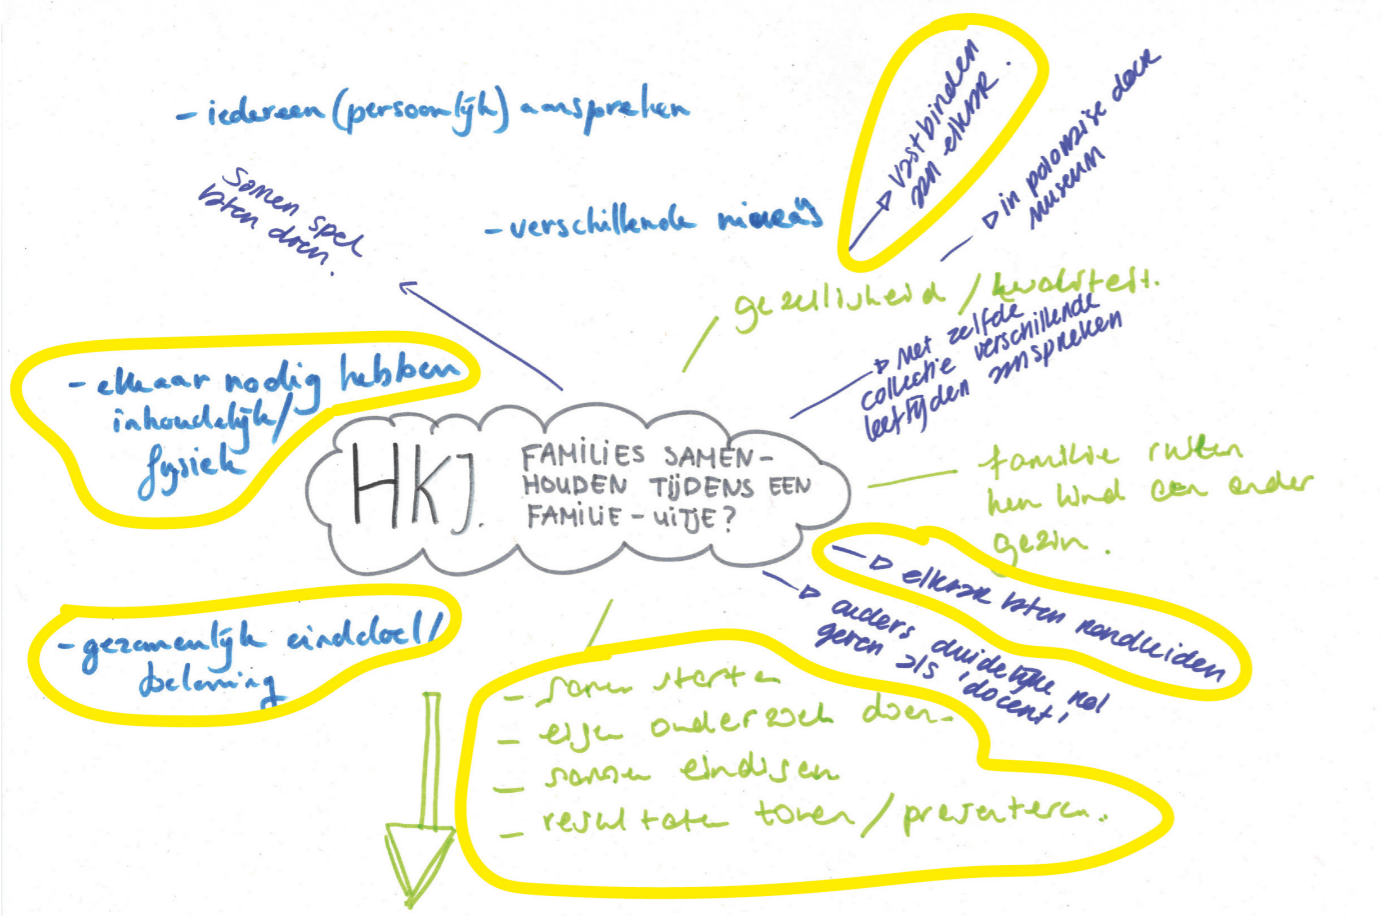 - iedereen (persoonlijk) aanspreken
Samen spel
laten doen.
- verschillende niveaus
→ vastbinden
aan elkaar.
→ in polonaise door
museum
gezelligheid / kwaliteit.
→ Met zelfde
collectie verschillende
leeftijden aanspreken
- elkaar nodig hebben
inhoudelijk/
fysiek
HKJ.
FAMILIES SAMEN-
HOUDEN TIJDENS EEN
FAMILIE-UITJE?
familie ruilen
hun kind een ander
gezin.
→ elkaar laten rondleiden
→ ouders duidelijke rol
geven als 'docent'
- gezamenlijk einddoel/
beloning
- samen starten
- eigen onderzoek doen
- samen eindigen
- resultaten tonen / presenteren.